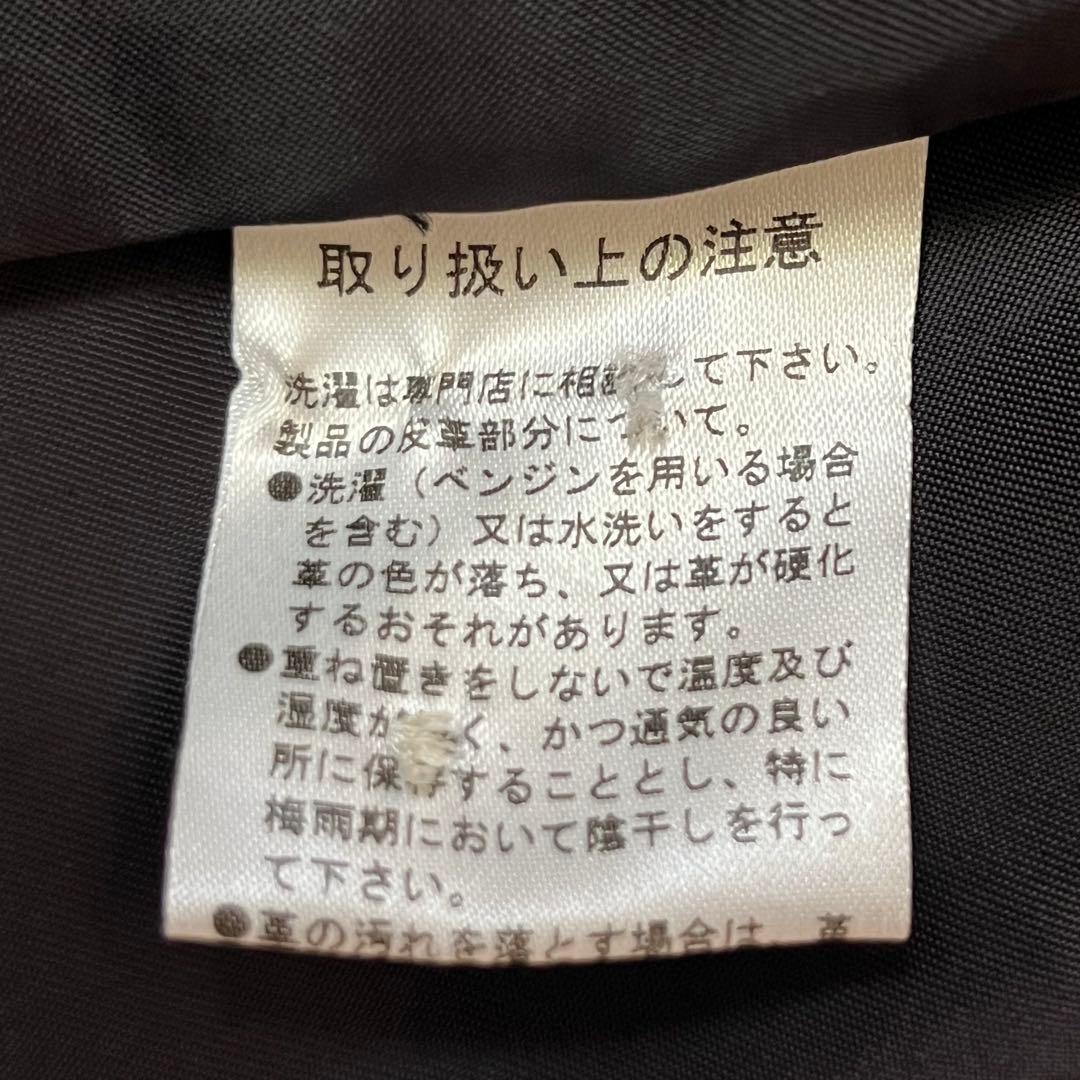 取り扱い上の注意
洗濯は専門店に相談して下さい。
製品の皮革部分について。
●洗濯（ベンジンを用いる場合
を含む）又は水洗いをすると
革の色が落ち、又は革が硬化
するおそれがあります。
●重ね置きをしないで温度及び
湿度が く、かつ通気の良い
所に保存することとし、特に
梅雨期において陰干しを行っ
て下さい。
●革の汚れを落とす場合は、革